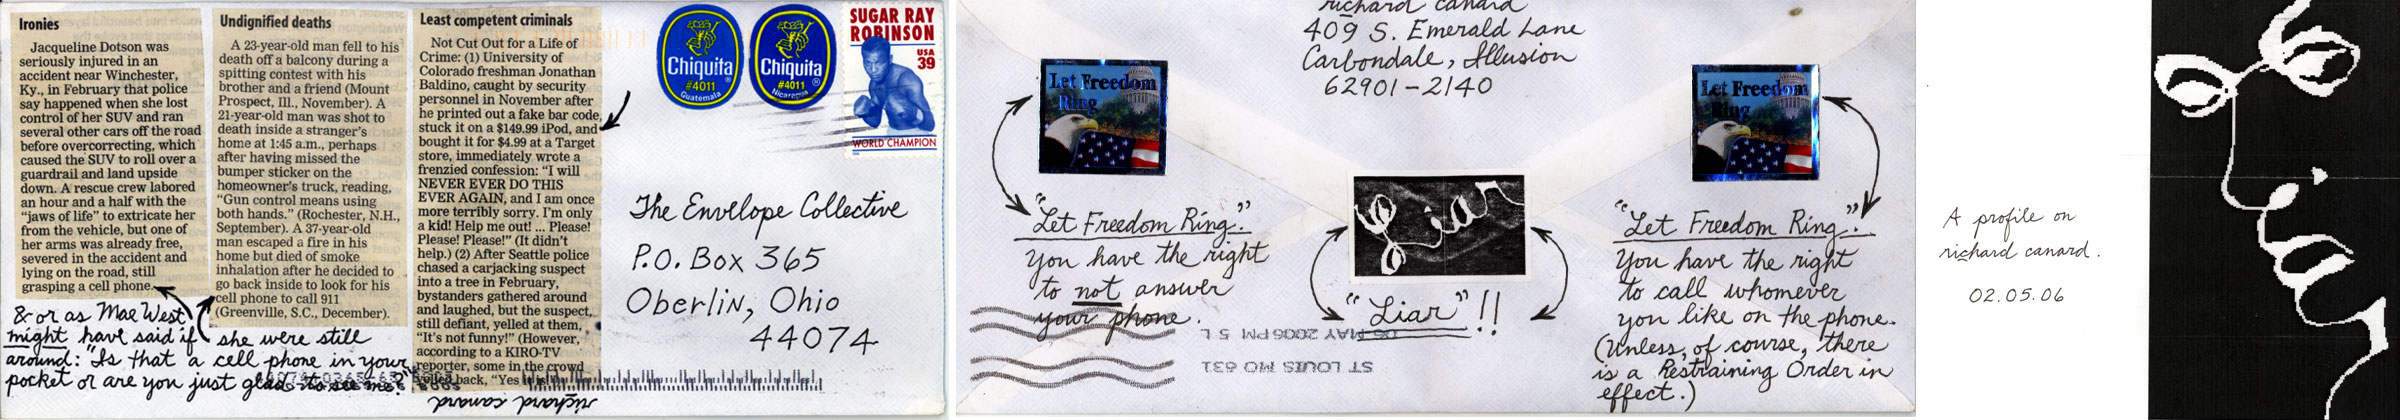 Ironies
Jacqueline Dotson was
seriously injured in an
accident near Winchester,
Ky., in February that police
say happened when she lost
control of her SUV and ran
several other cars off the road
before overcorrecting, which
caused the SUV to roll over a
guardrail and land upside
down. A rescue crew labored
an hour and a half with the
"jaws of life" to extricate her
from the vehicle, but one of
her arms was already free,
severed in the accident and
lying on the road, still
grasping a cell phone.
Undignified deaths
A 23-year-old man fell to his
death off a balcony during a
spitting contest with his
brother and a friend (Mount
Prospect, Ill., November). A
21-year-old man was shot to
death inside a stranger's
home at 1:45 a.m., perhaps
after having missed the
bumper sticker on the
homeowner's truck, reading,
"Gun control means using
both hands." (Rochester, N.H.,
September). A 37-year-old
man escaped a fire in his
home but died of smoke
inhalation after he decided to
go back inside to look for his
cell phone to call 911
(Greenville, S.C., December).
Least competent criminals
Not Cut Out for a Life of
Crime: (1) University of
Colorado freshman Jonathan
Baldino, caught by security
personnel in November after
he printed out a fake bar code,
stuck it on a $149.99 iPod, and
bought it for $4.99 at a Target
store, immediately wrote a
frenzied confession: "I will
NEVER EVER DO THIS
EVER AGAIN, and I am once
more terribly sorry. I'm only
a kid! Help me out! ... Please!
Please! Please!" (It didn't
help.) (2) After Seattle police
chased a carjacking suspect
into a tree in February,
bystanders gathered around
and laughed, but the suspect,
still defiant, yelled at them,
"It's not funny!" (However,
according to a KIRO-TV
reporter, some in the crowd
yelled back, "Yes
& or as Mae West
might have said if she were still
around: "Is that a cell phone in your
pocket or are you just glad to see me?"
richard canard
Chiquita
#4011
Guatemala
Chiquita
#4011
Nicaragua
SUGAR RAY
ROBINSON
USA
39
WORLD CHAMPION
The Envelope Collective
P.O. Box 365
Oberlin, Ohio
44074
richard canard
409 S. Emerald Lane
Carbondale, Illusion
62901-2140
Let Freedom
Ring
"Let Freedom Ring."
You have the right
to not answer
your phone.
Liar
"Liar"!!
Let Freedom
Ring
"Let Freedom Ring."
You have the right
to call whomever
you like on the phone.
(Unless, of course, there
is a Restraining Order in
effect.)
ST LOUIS MO 631
05 MAY 2006 PM 5 L
A profile on
richard canard.
02.05.06
Liar